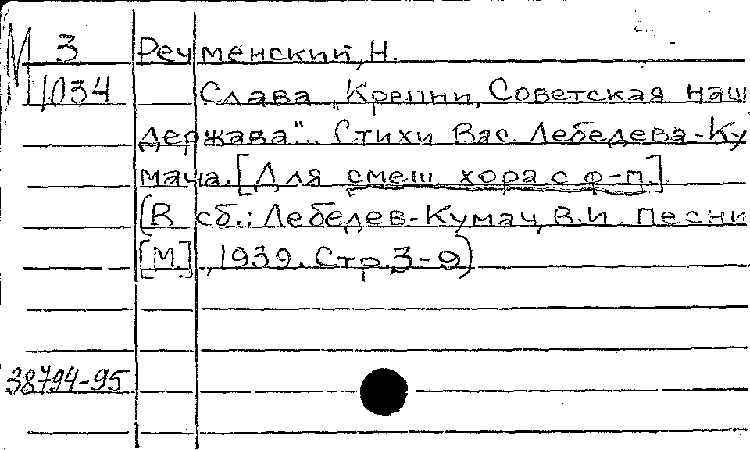 М 3 Речменский, Н.
1034 Слава „Крепни, Советская наш
держава". Стихи Вас. Лебедева-Ку
мача. [Для смеш хора с ф-п.]
(В сб.: Лебедев-Кумач, В.И. Песни
[М.], 1939. Стр. 3-9)
38794-95